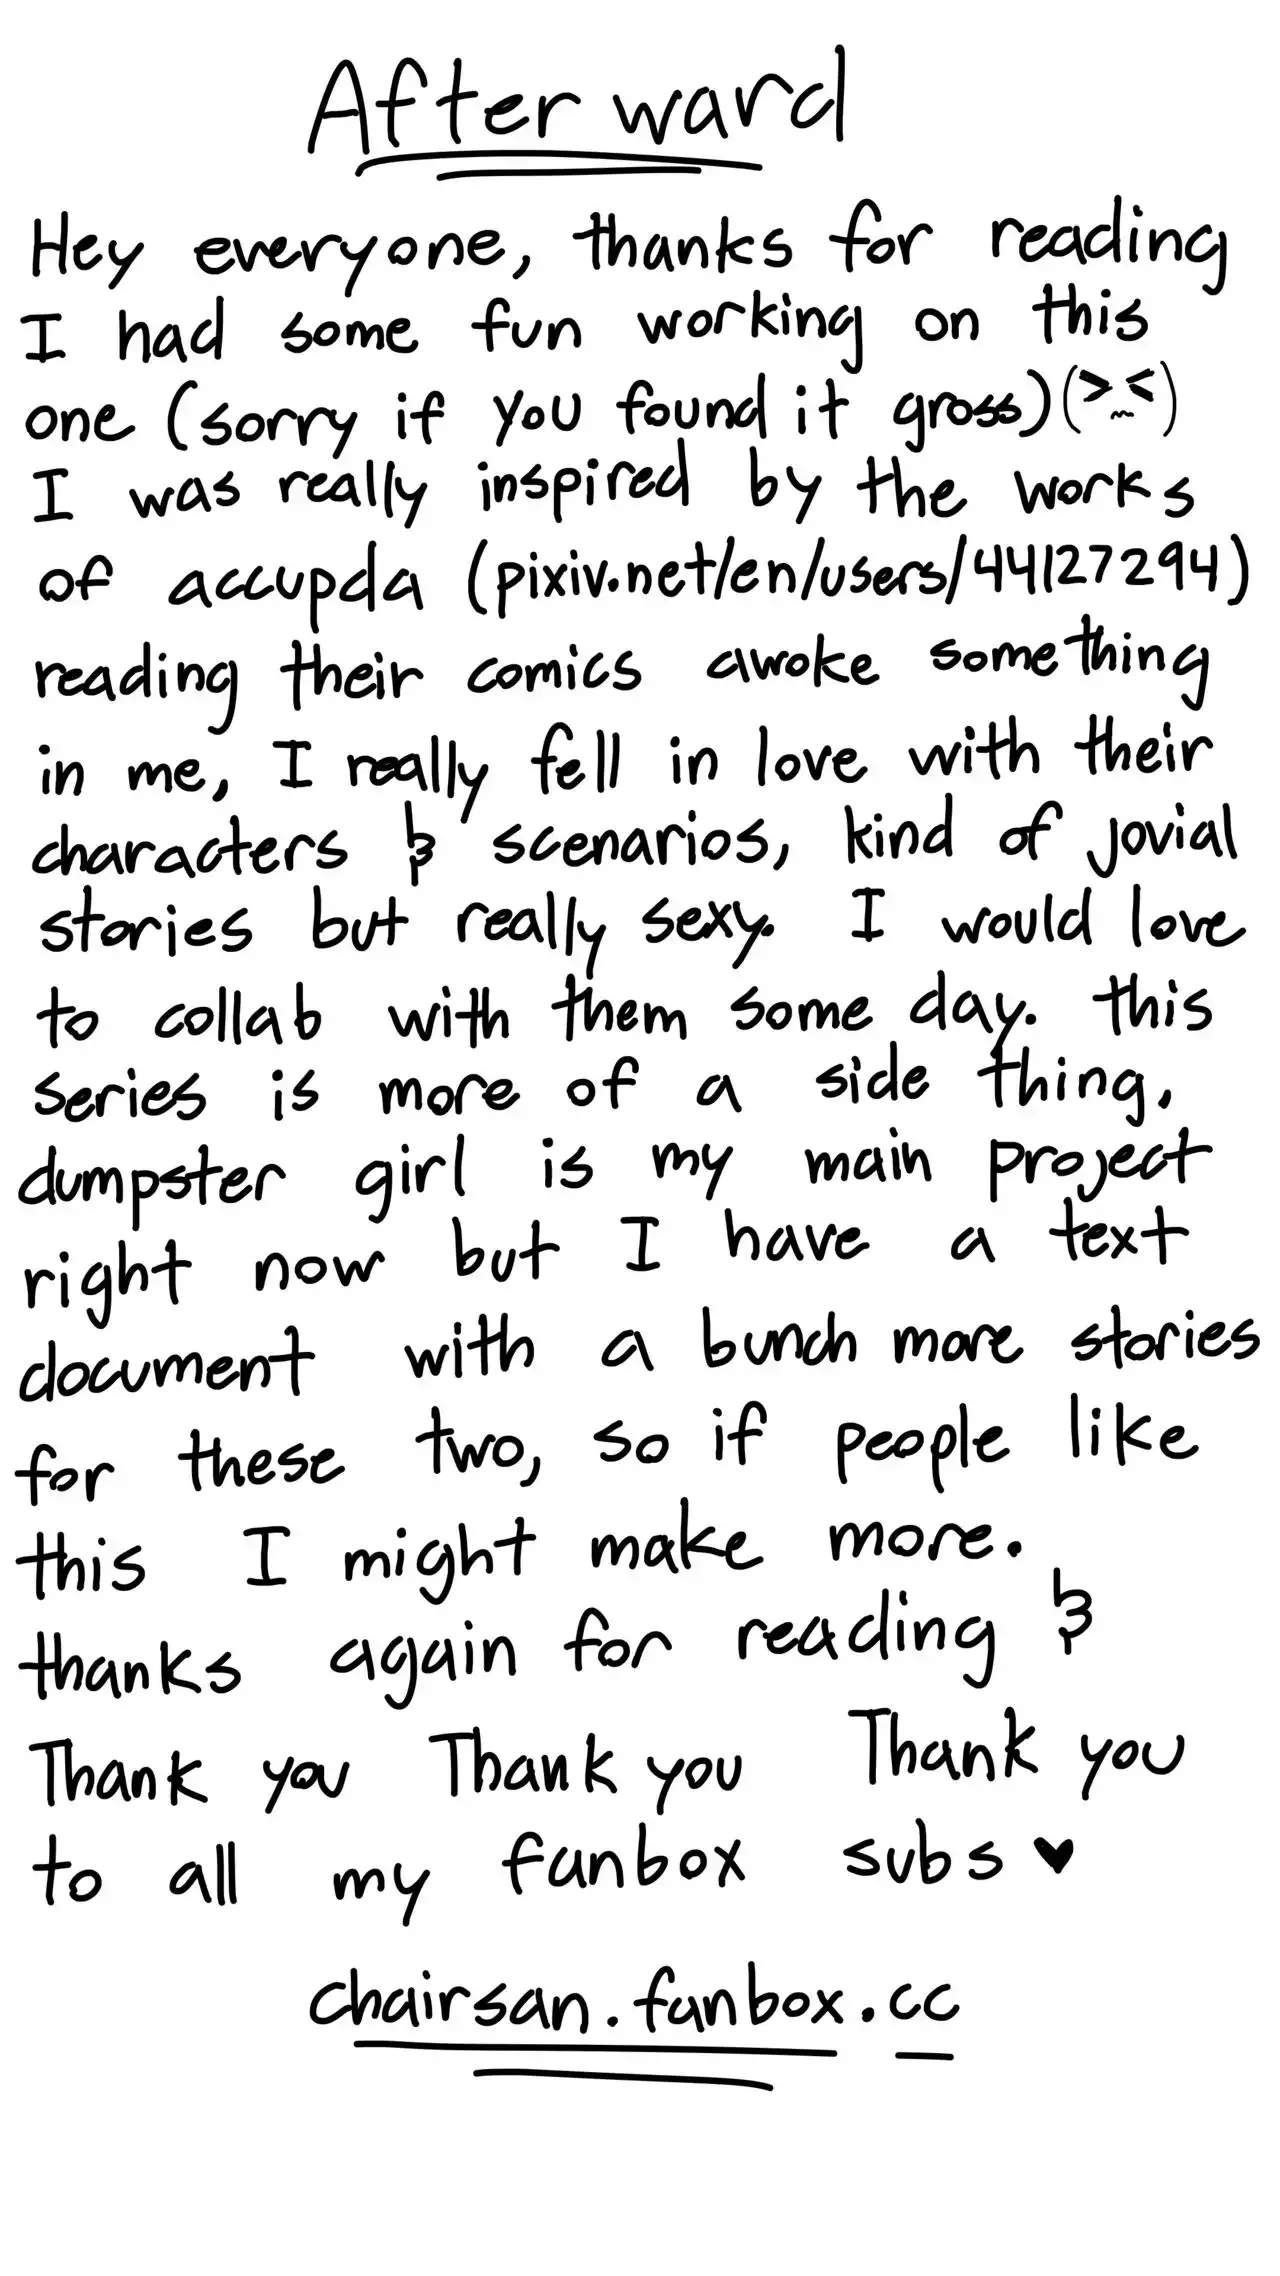 After ward
Hey everyone, thanks for reading
I had some fun working on this
one (sorry if you found it gross)(>~<)
I was really inspired by the works
of accupda (pixiv.net/en/users/44127294)
reading their comics awoke something
in me, I really fell in love with their
characters & scenarios, kind of jovial
stories but really sexy. I would love
to collab with them some day. this
series is more of a side thing,
dumpster girl is my main project
right now but I have a text
document with a bunch more stories
for these two, so if people like
this I might make more.
thanks again for reading &
Thank you Thank you Thank you
to all my fanbox subs ♥
chairsan.fanbox.cc